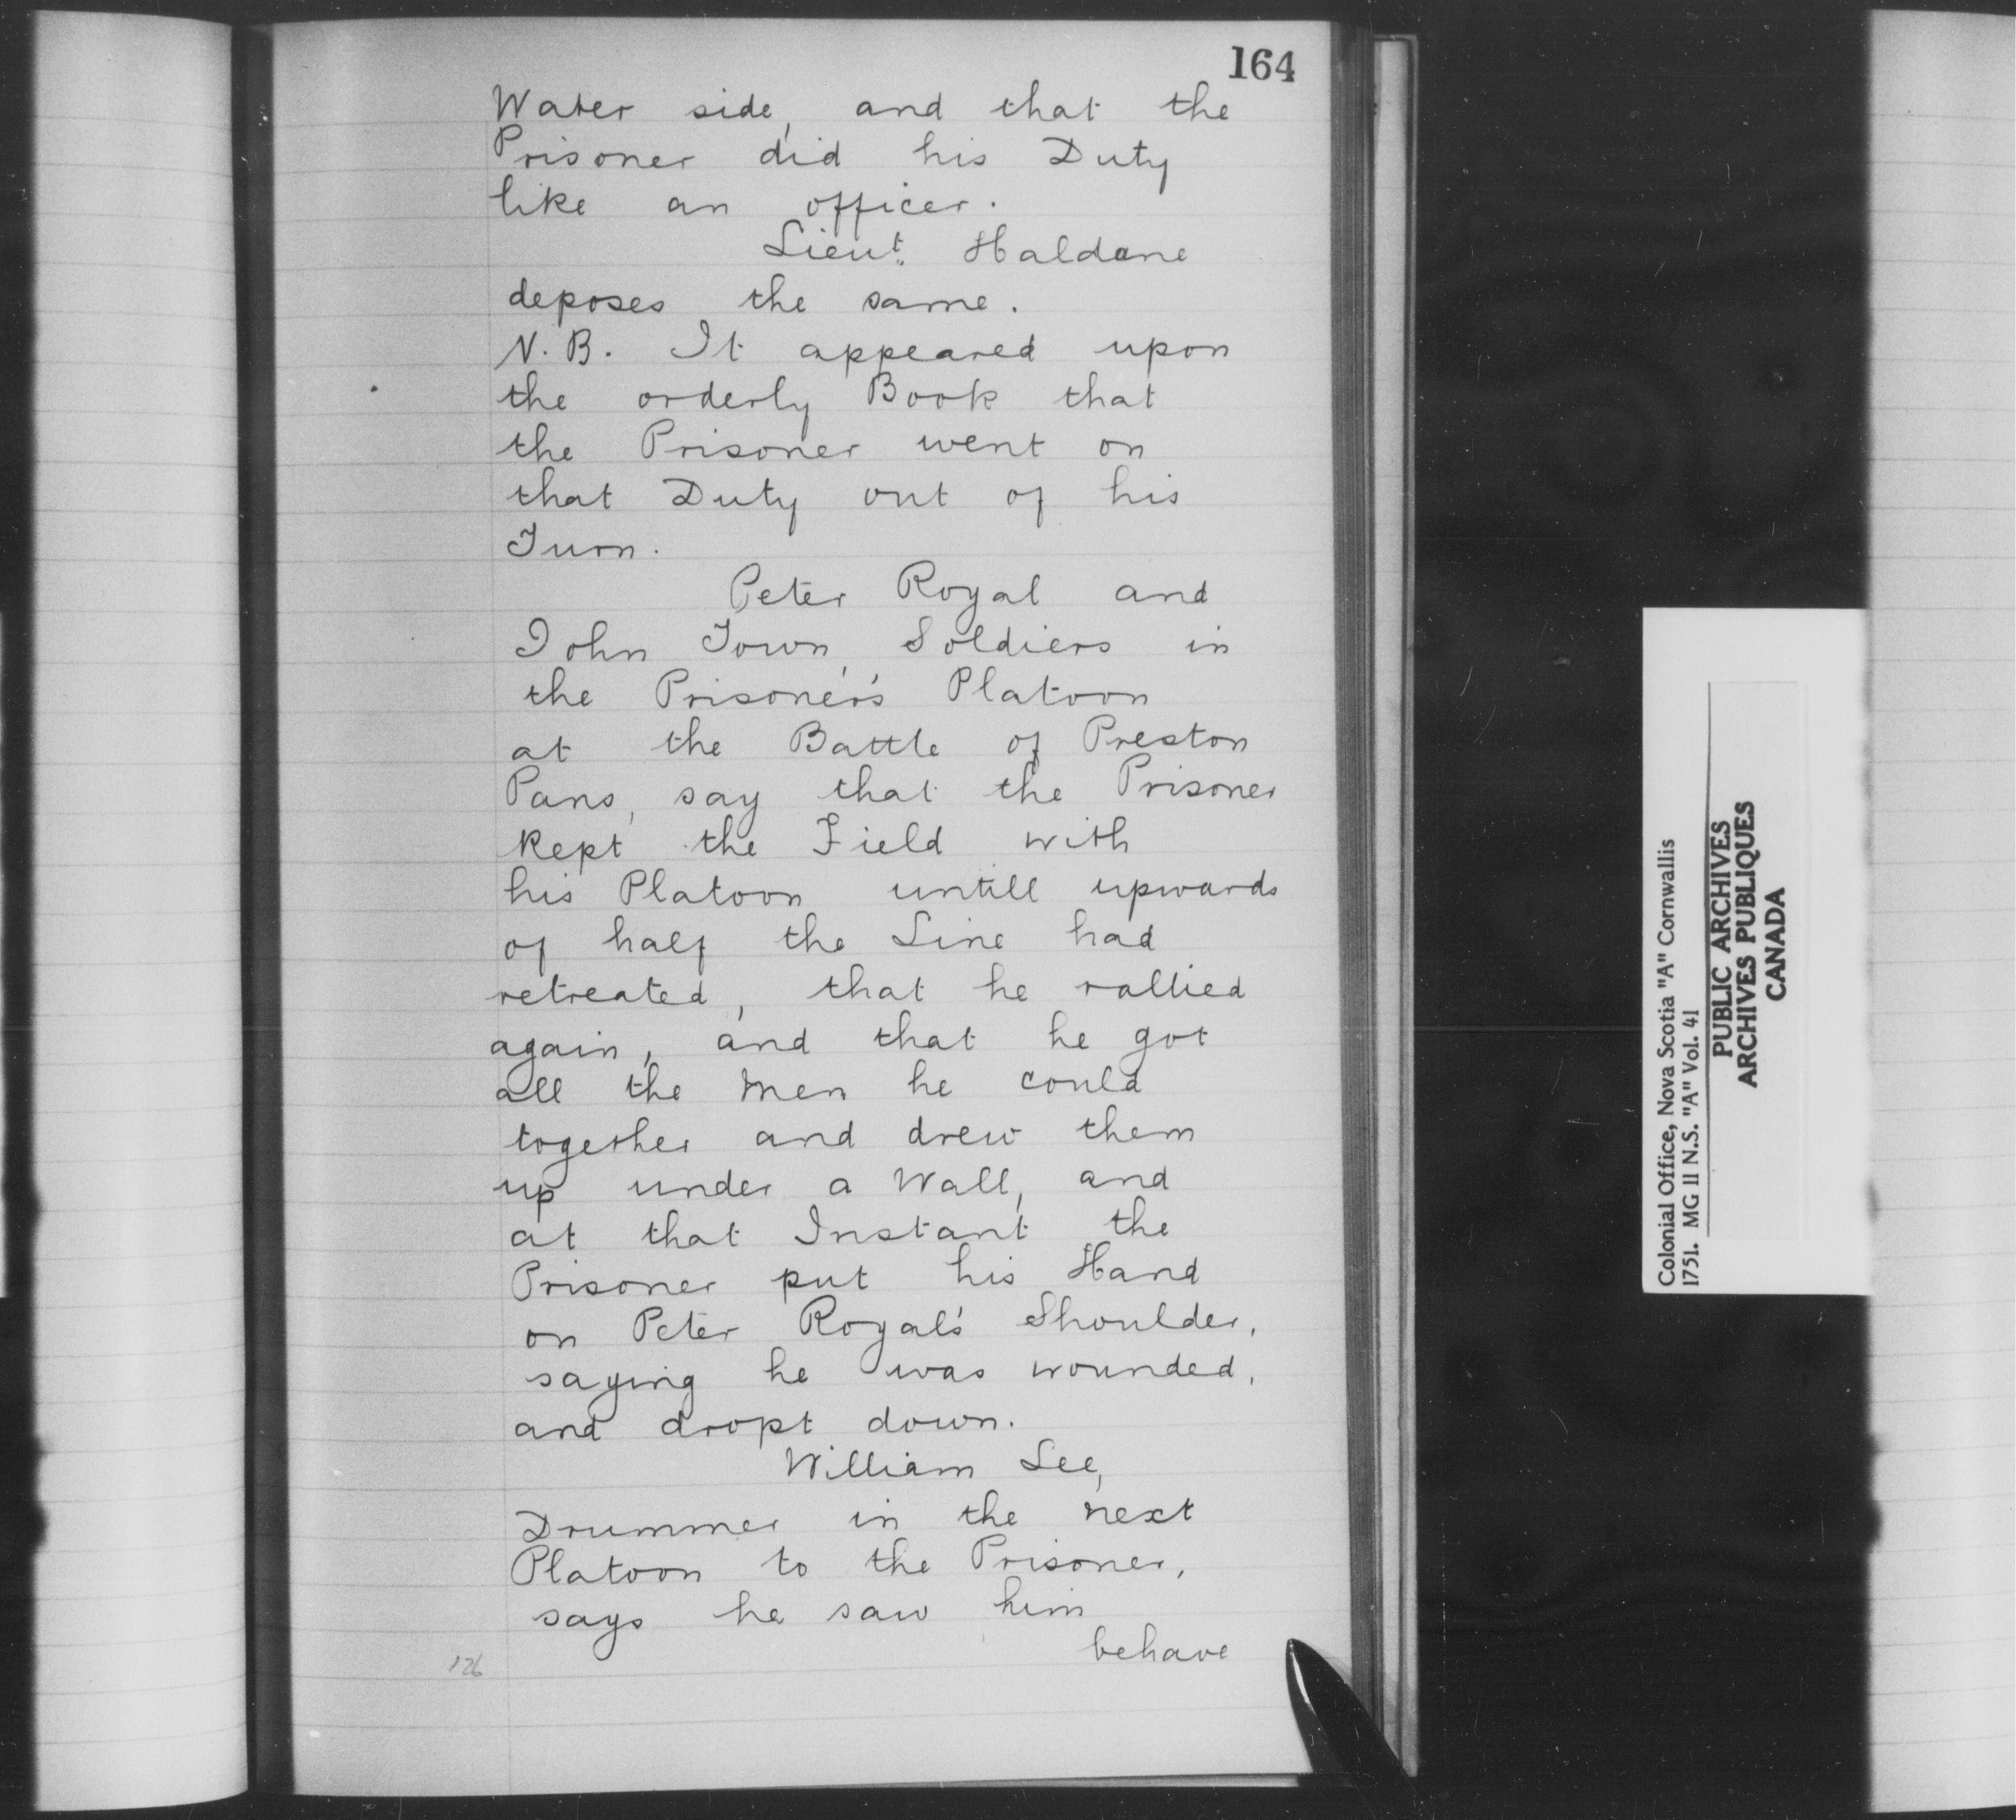 164
Water side, and that the
Prisoner did his Duty
like an officer.
Lieut. Haldane
deposes the same.
N.B. It appeared upon
the orderly Book that
the Prisoner went on
that Duty out of his
Turn.
Peter Royal and
John Town, Soldiers in
the Prisoner's Platoon
at the Battle of Preston
Pans, say that the Prisoner
kept the Field with
his Platoon untill upwards
of half the Line had
retreated, that he rallied
again, and that he got
all the Men he could
together and drew them
up under a Wall, and
at that Instant the
Prisoner put his Hand
on Peter Royal's Shoulder,
saying he was wounded,
and dropt down.
William Lee,
Drummer in the next
Platoon to the Prisoner,
says he saw him
behave
126
Colonial Office, Nova Scotia "A" Cornwallis
1751. MG 11 N.S. "A" Vol. 41
PUBLIC ARCHIVES
ARCHIVES PUBLIQUES
CANADA